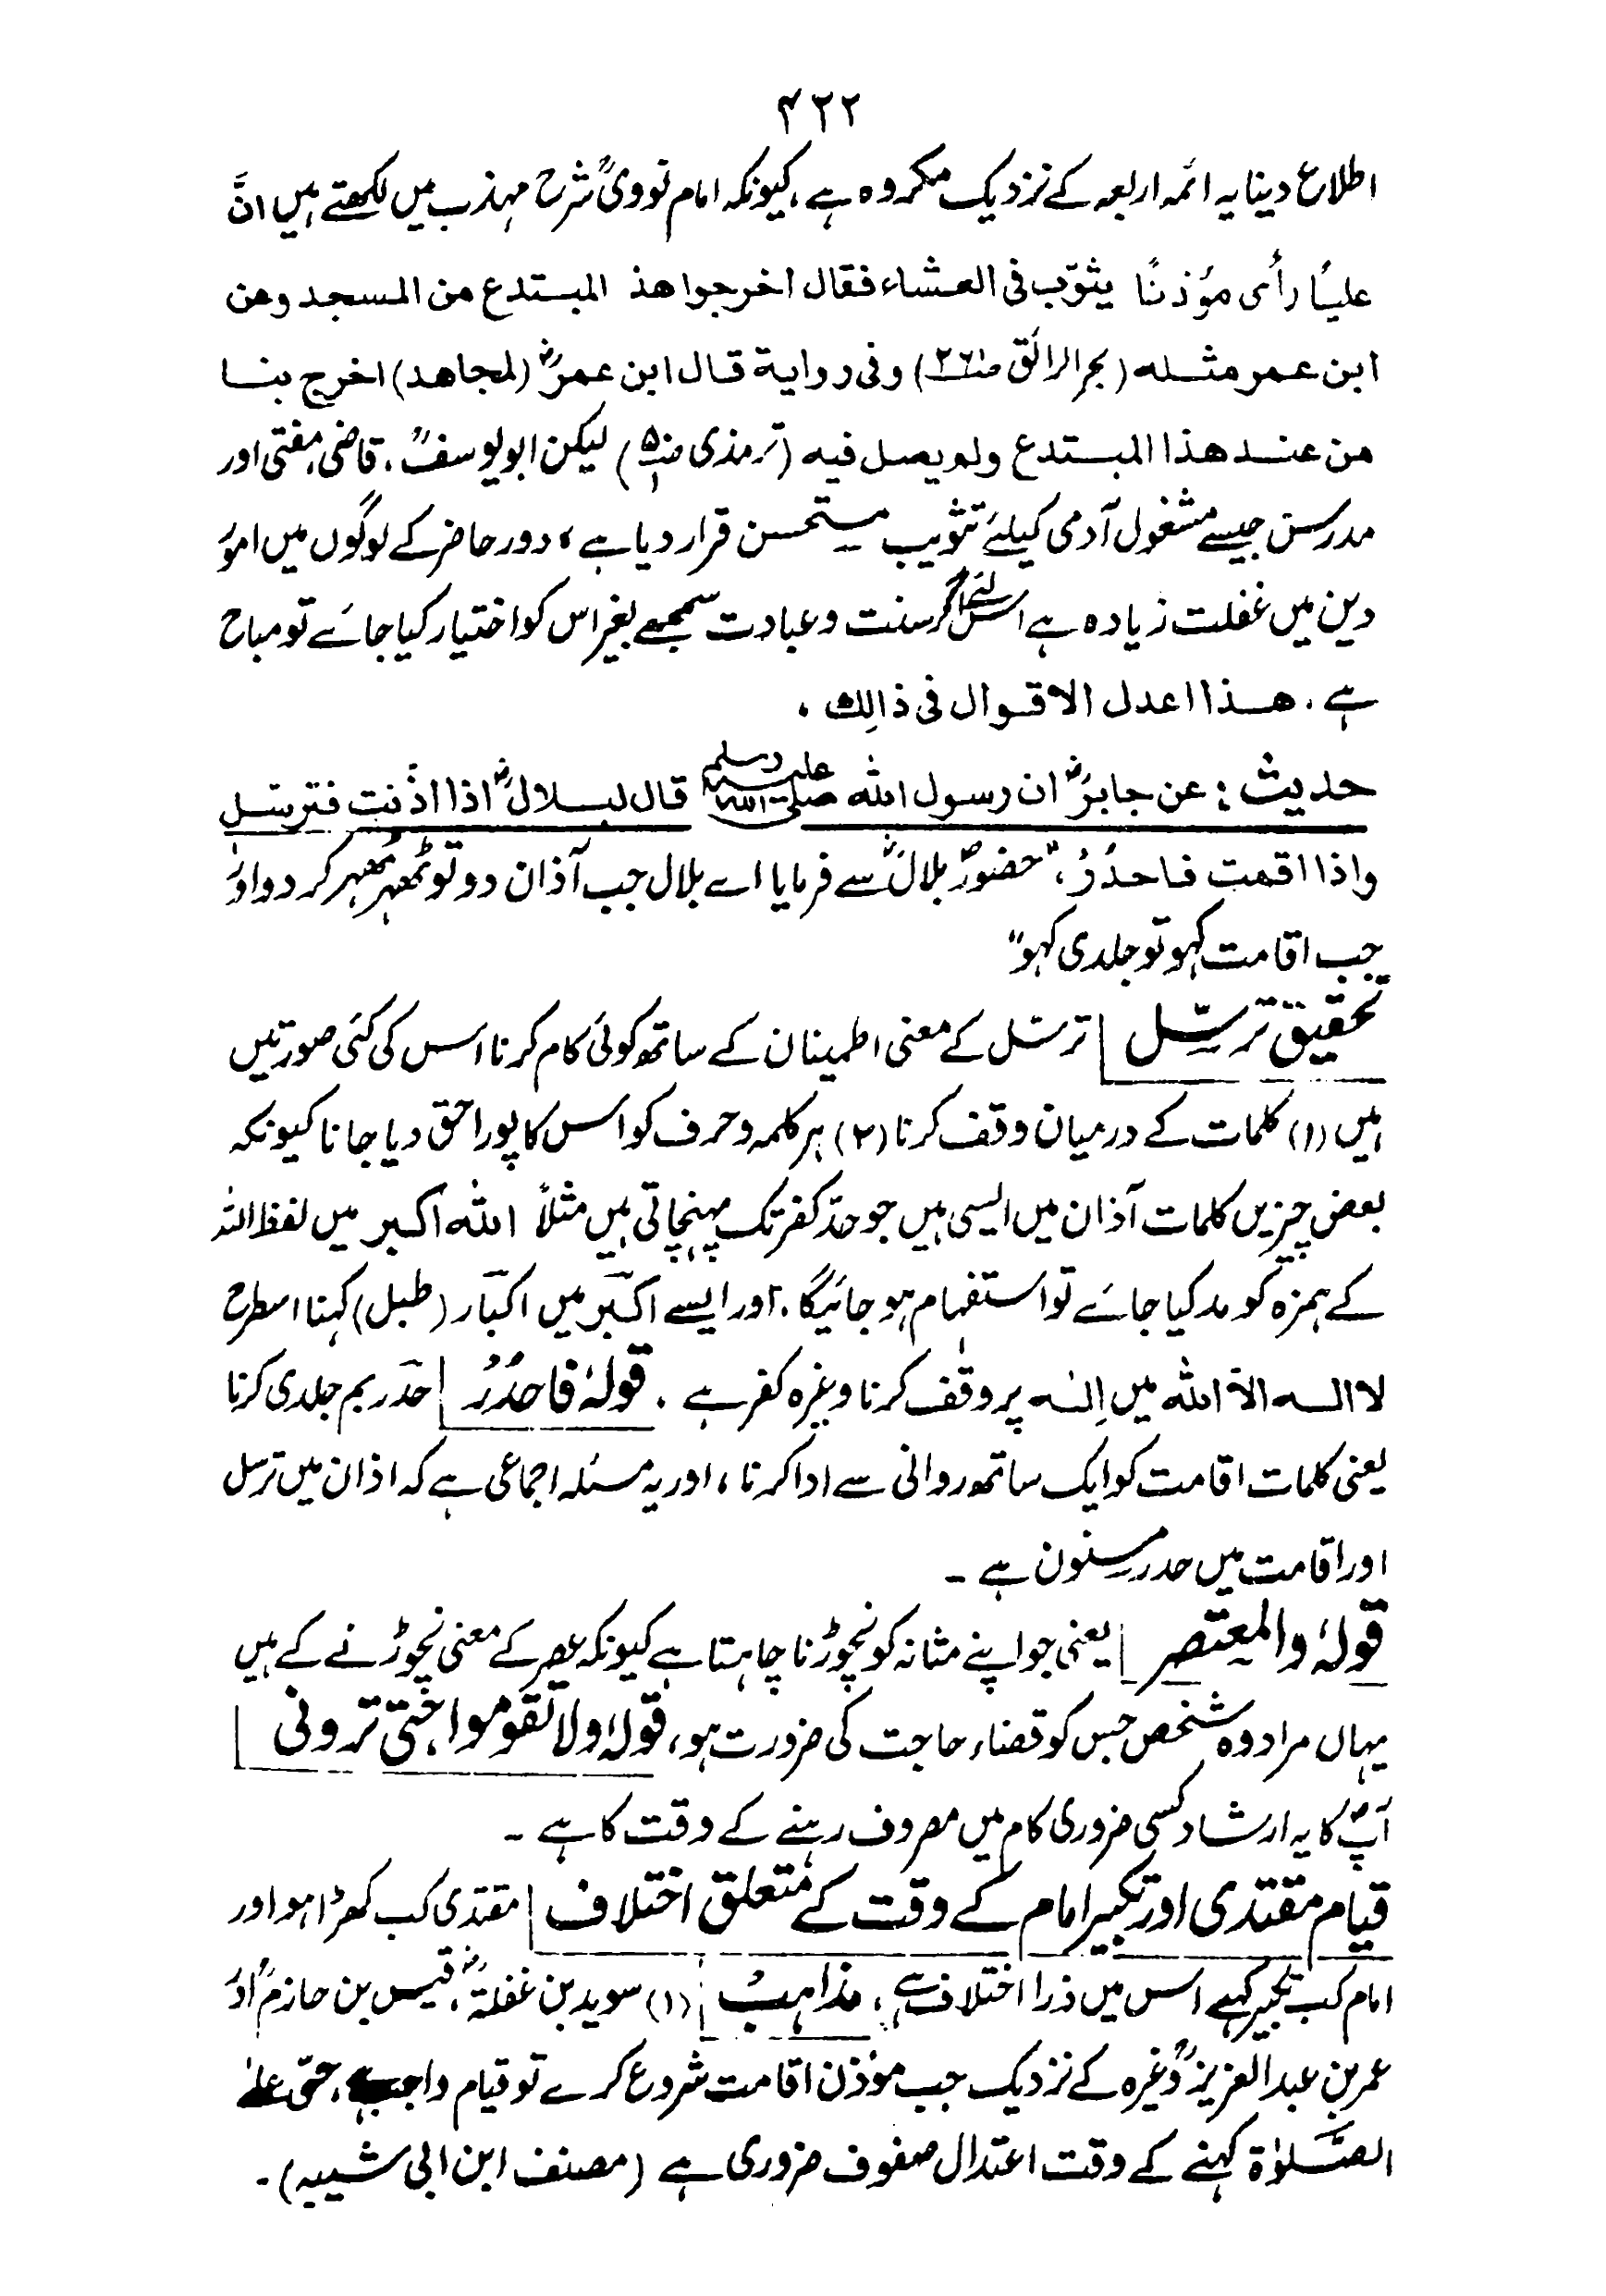 ۴۲۲
اطلاع دینا یہ ائمہ اربعہ کے نزدیک مکروہ ہے، کیونکہ امام نوویؒ شرح مہذب میں لکھتے ہیں انَّ
علیًا رأی مؤذنًا یثوّب فی العشاء فقال اخرجوا هذ المبتدع من المسجد وعن
ابن عمر مثله (بحر الرائق ص۲۶۱) وفی روایة قال ابن عمرؓ (لمجاهد) اخرج بنا
من عند هذا المبتدع ولم یصل فیه (ترمذی ص۵۰) لیکن ابویوسفؒ، قاضی، مفتی اور
مدرس جیسے مشغول آدمی کیلئے تثویب مستحسن قرار دیا ہے، دور حاضر کے لوگوں میں امور
دین میں غفلت زیادہ ہے اسلئے اگر سنت و عبادت سمجھے بغیر اس کو اختیار کیا جائے تو مباح
ہے، هذا اعدل الاقوال فی ذالک،
حدیث: عن جابرؓ ان رسول الله صلی الله علیہ وسلم قال لبلالؓ اذا اذنت فترسل
واذا اقمت فاحدُرُ، "حضورؐ بلالؓ سے فرمایا اے بلال جب آذان دو تو ٹھہر ٹھہر کر دو اور
جب اقامت کہو تو جلدی کہو"
تحقیق ترسّل | ترسّل کے معنی اطمینان کے ساتھ کوئی کام کرنا اس کی کئی صورتیں
ہیں (۱) کلمات کے درمیان وقف کرنا (۲) ہر کلمہ و حرف کو اس کا پورا حق دیا جانا کیونکہ
بعض چیزیں کلمات آذان میں ایسی ہیں جو حدّ کفر تک پہنچاتی ہیں مثلاً الله اکبر میں لفظ اللہ
کے ہمزہ کو مد کیا جائے تو استفہام ہو جائیگا، اور ایسے اکبر میں اکبار (طبل) کہنا اسطرح
لا الہ الا اللہ میں اِلٰہ پر وقف کرنا وغیرہ کفر ہے، قولہٗ فاحدُرُ | حدر بم جلدی کرنا
یعنی کلمات اقامت کو ایک ساتھ روانی سے ادا کرنا، اور یہ مسئلہ اجماعی ہے کہ اذان میں ترسل
اور اقامت میں حدر مسنون ہے ۔
قولہٗ والمعتصر | یعنی جو اپنے مثانہ کو نچوڑنا چاہتا ہے کیونکہ عصر کے معنی نچوڑنے کے ہیں
یہاں مراد وہ شخص جس کو قضاء حاجت کی ضرورت ہو، قولہٗ ولا تقوموا حتیٰ ترونی |
آپؐ کا یہ ارشاد کسی ضروری کام میں مصروف رہنے کے وقت کا ہے ۔
قیام مقتدی اور تکبیر امام کے وقت کے متعلق اختلاف | مقتدی کب کھڑا ہو اور
امام کب تکبیر کہے اس میں ذرا اختلاف ہے، مذاہب | (۱) سوید بن غفلةؓ، قیس بن حازمؒ اور
عمر بن عبد العزیزؒ وغیرہ کے نزدیک جب مؤذن اقامت شروع کرے تو قیام واجب ہے، حیّ علیٰ
الصّلوٰۃ کہنے کے وقت اعتدال صفوف ضروری ہے (مصنف ابن ابی شیبہ)۔